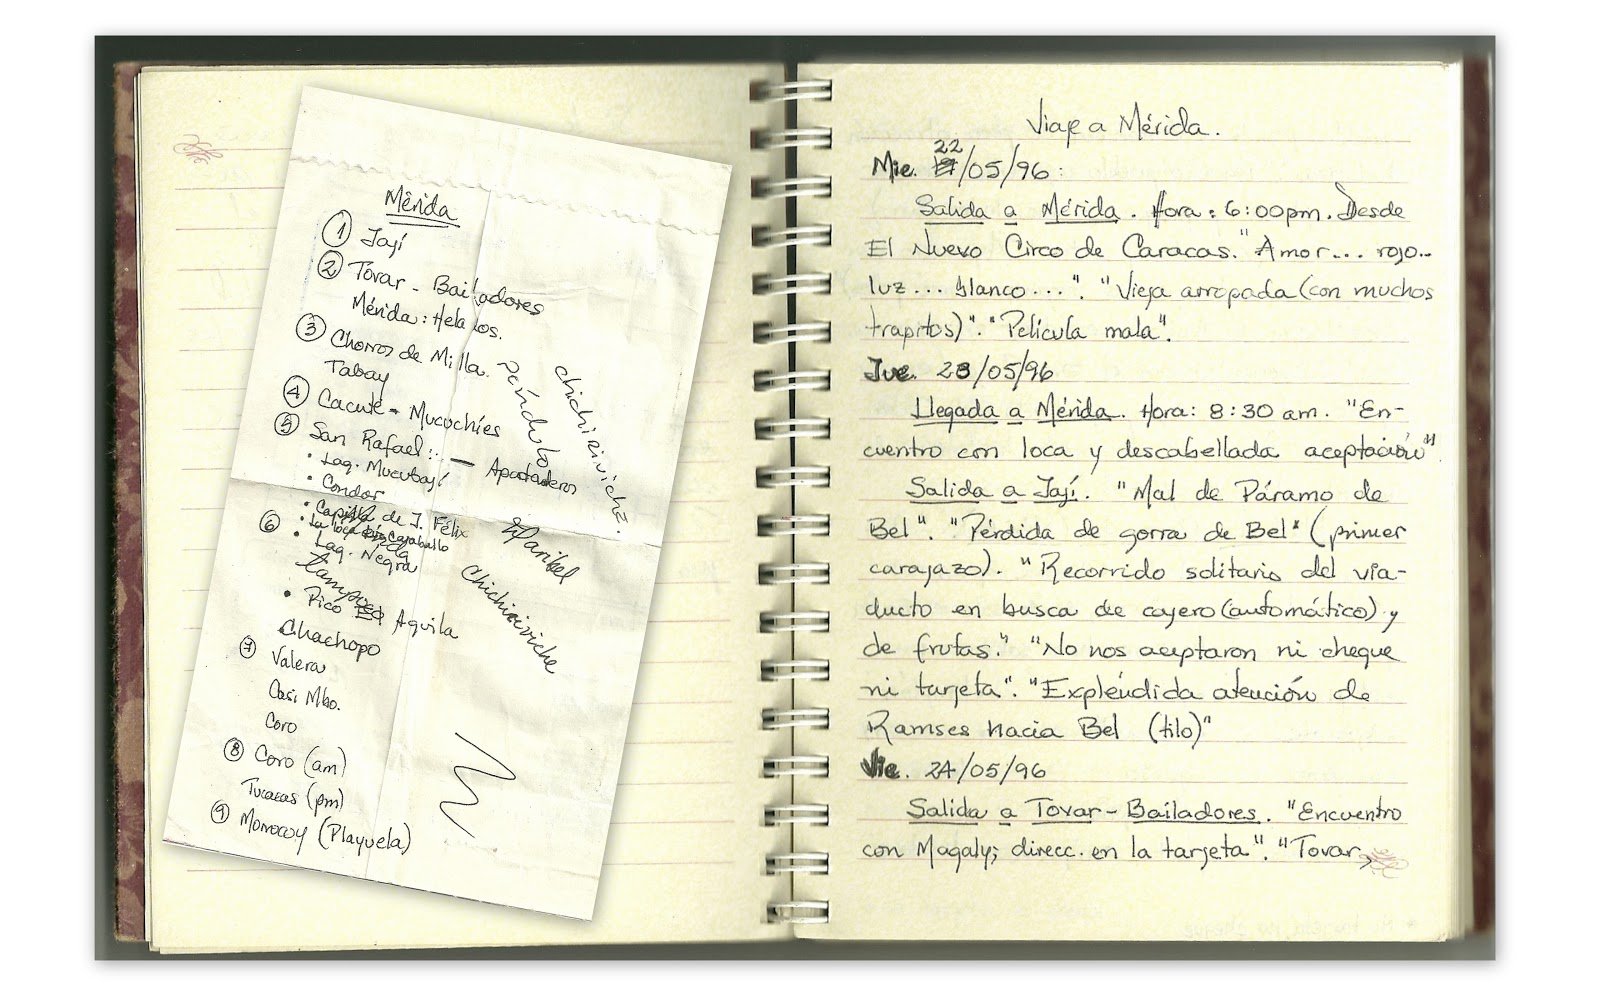 Mérida
① Jají
② Tovar - Bailadores
Mérida: Helados.
③ Chorros de Milla.
Tabay
④ Cacute - Mucuchíes
⑤ San Rafael:. — Apartaderos
• Lag. Mucubají
• Condor
• Capilla de J. Félix
• La loca Caraballo
⑥ • Lag. Negra
• Pico Aguila
Chachopo
⑦ Valera
Casi Mbo.
Coro
⑧ Coro (am)
Tucacas (pm)
⑨ Morrocoy (Playuela)
Chichiriviche.
Maribel
Chichiriviche
Viaje a Mérida.
Mie. 22/05/96:
Salida a Mérida. Hora: 6:00pm. Desde
El Nuevo Circo de Caracas. "Amor... rojo..
luz... blanco...". "Vieja arropada (con muchos
trapitos)". "Película mala".
Jue. 23/05/96
Llegada a Mérida. Hora: 8:30 am. "En-
cuentro con loca y descabellada aceptación"
Salida a Jají. "Mal de Páramo de
Bel". "Pérdida de gorra de Bel" (primer
carajazo). "Recorrido solitario del via-
ducto en busca de cajero (automático) y
de frutas." "No nos aceptaron ni cheque
ni tarjeta". "Expléndida atención de
Ramses hacia Bel (tilo)"
Vie. 24/05/96
Salida a Tovar-Bailadores. "Encuentro
con Magaly; direcc. en la tarjeta". "Tovar,